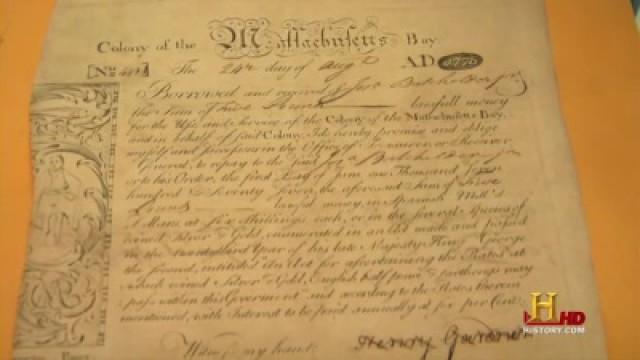 Colony of the Massachusetts Bay.
The 24th day of Aug AD 1776
Borrowed and received of
the Sum of lawfull money
for the Use and service of the Colony of the Massachusetts-Bay,
and in behalf of said Colony, I do hereby promise and oblige
myself and successors in the Office of Treasurer or Receiver
General, to repay to the said
or to his Order, the first Day of June one Thousand Seven
hundred & Seventy Seven, the aforesaid Sum of
Pounds lawful money, in Spanish Mill'd
Dollars at Six Shillings each, or in the several Species of
coined Silver & Gold, enumerated in an Act made and passed
in the Year of his late Majesty King George
the second, entitled an Act for ascertaining the Rates at
which coined Silver & Gold, English half pence & farthings may
pass within this Goverment and according to the Rates therein
mentioned, with Interest to be paid annually at six per Cent.
Witness my hand.
Henry Gardner
H HD
HISTORY.COM